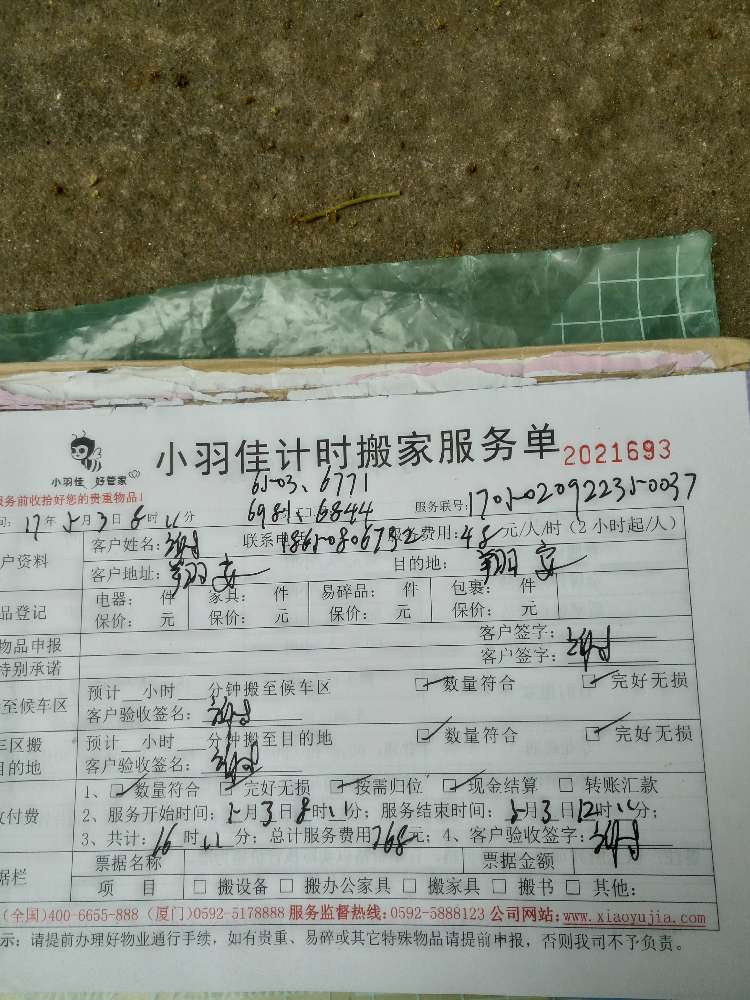 小羽佳 好管家
小羽佳计时搬家服务单 2021693
服务前收拾好您的贵重物品!
6503、6771
6981、6844
服务联号: 1705020922350037
间: 17年5月3日8时 分
户资料 客户姓名: 联系电话 服务费用: 48元/人/时(2小时起/人)
客户地址: 翔安 目的地: 翔安
品登记 电器: 件 家具: 件 易碎品: 件 包裹: 件
保价: 元 保价: 元 保价: 元 保价: 元
物品申报 客户签字:
特别承诺 客户签字:
至候车区 预计__小时___分钟搬至候车区 数量符合 完好无损
客户验收签名:
车区搬 预计__小时___分钟搬至目的地 数量符合 完好无损
目的地 客户验收签名:
1、 数量符合 完好无损 按需归位 现金结算 □ 转账汇款
收付费 2、服务开始时间: 5月3日8时 分; 服务结束时间: 5月3日12时 分;
3、共计: 16时 分; 总计服务费用768元; 4、客户验收签字:
据栏 票据名称 票据金额
项 目 □ 搬设备 □ 搬办公家具 □ 搬家具 □ 搬书 □ 其他:
(全国)400-6655-888 (厦门)0592-5178888 服务监督热线:0592-5888123 公司网站:www.xiaoyujia.com
示: 请提前办理好物业通行手续, 如有贵重、易碎或其它特殊物品请提前申报, 否则我司不予负责。